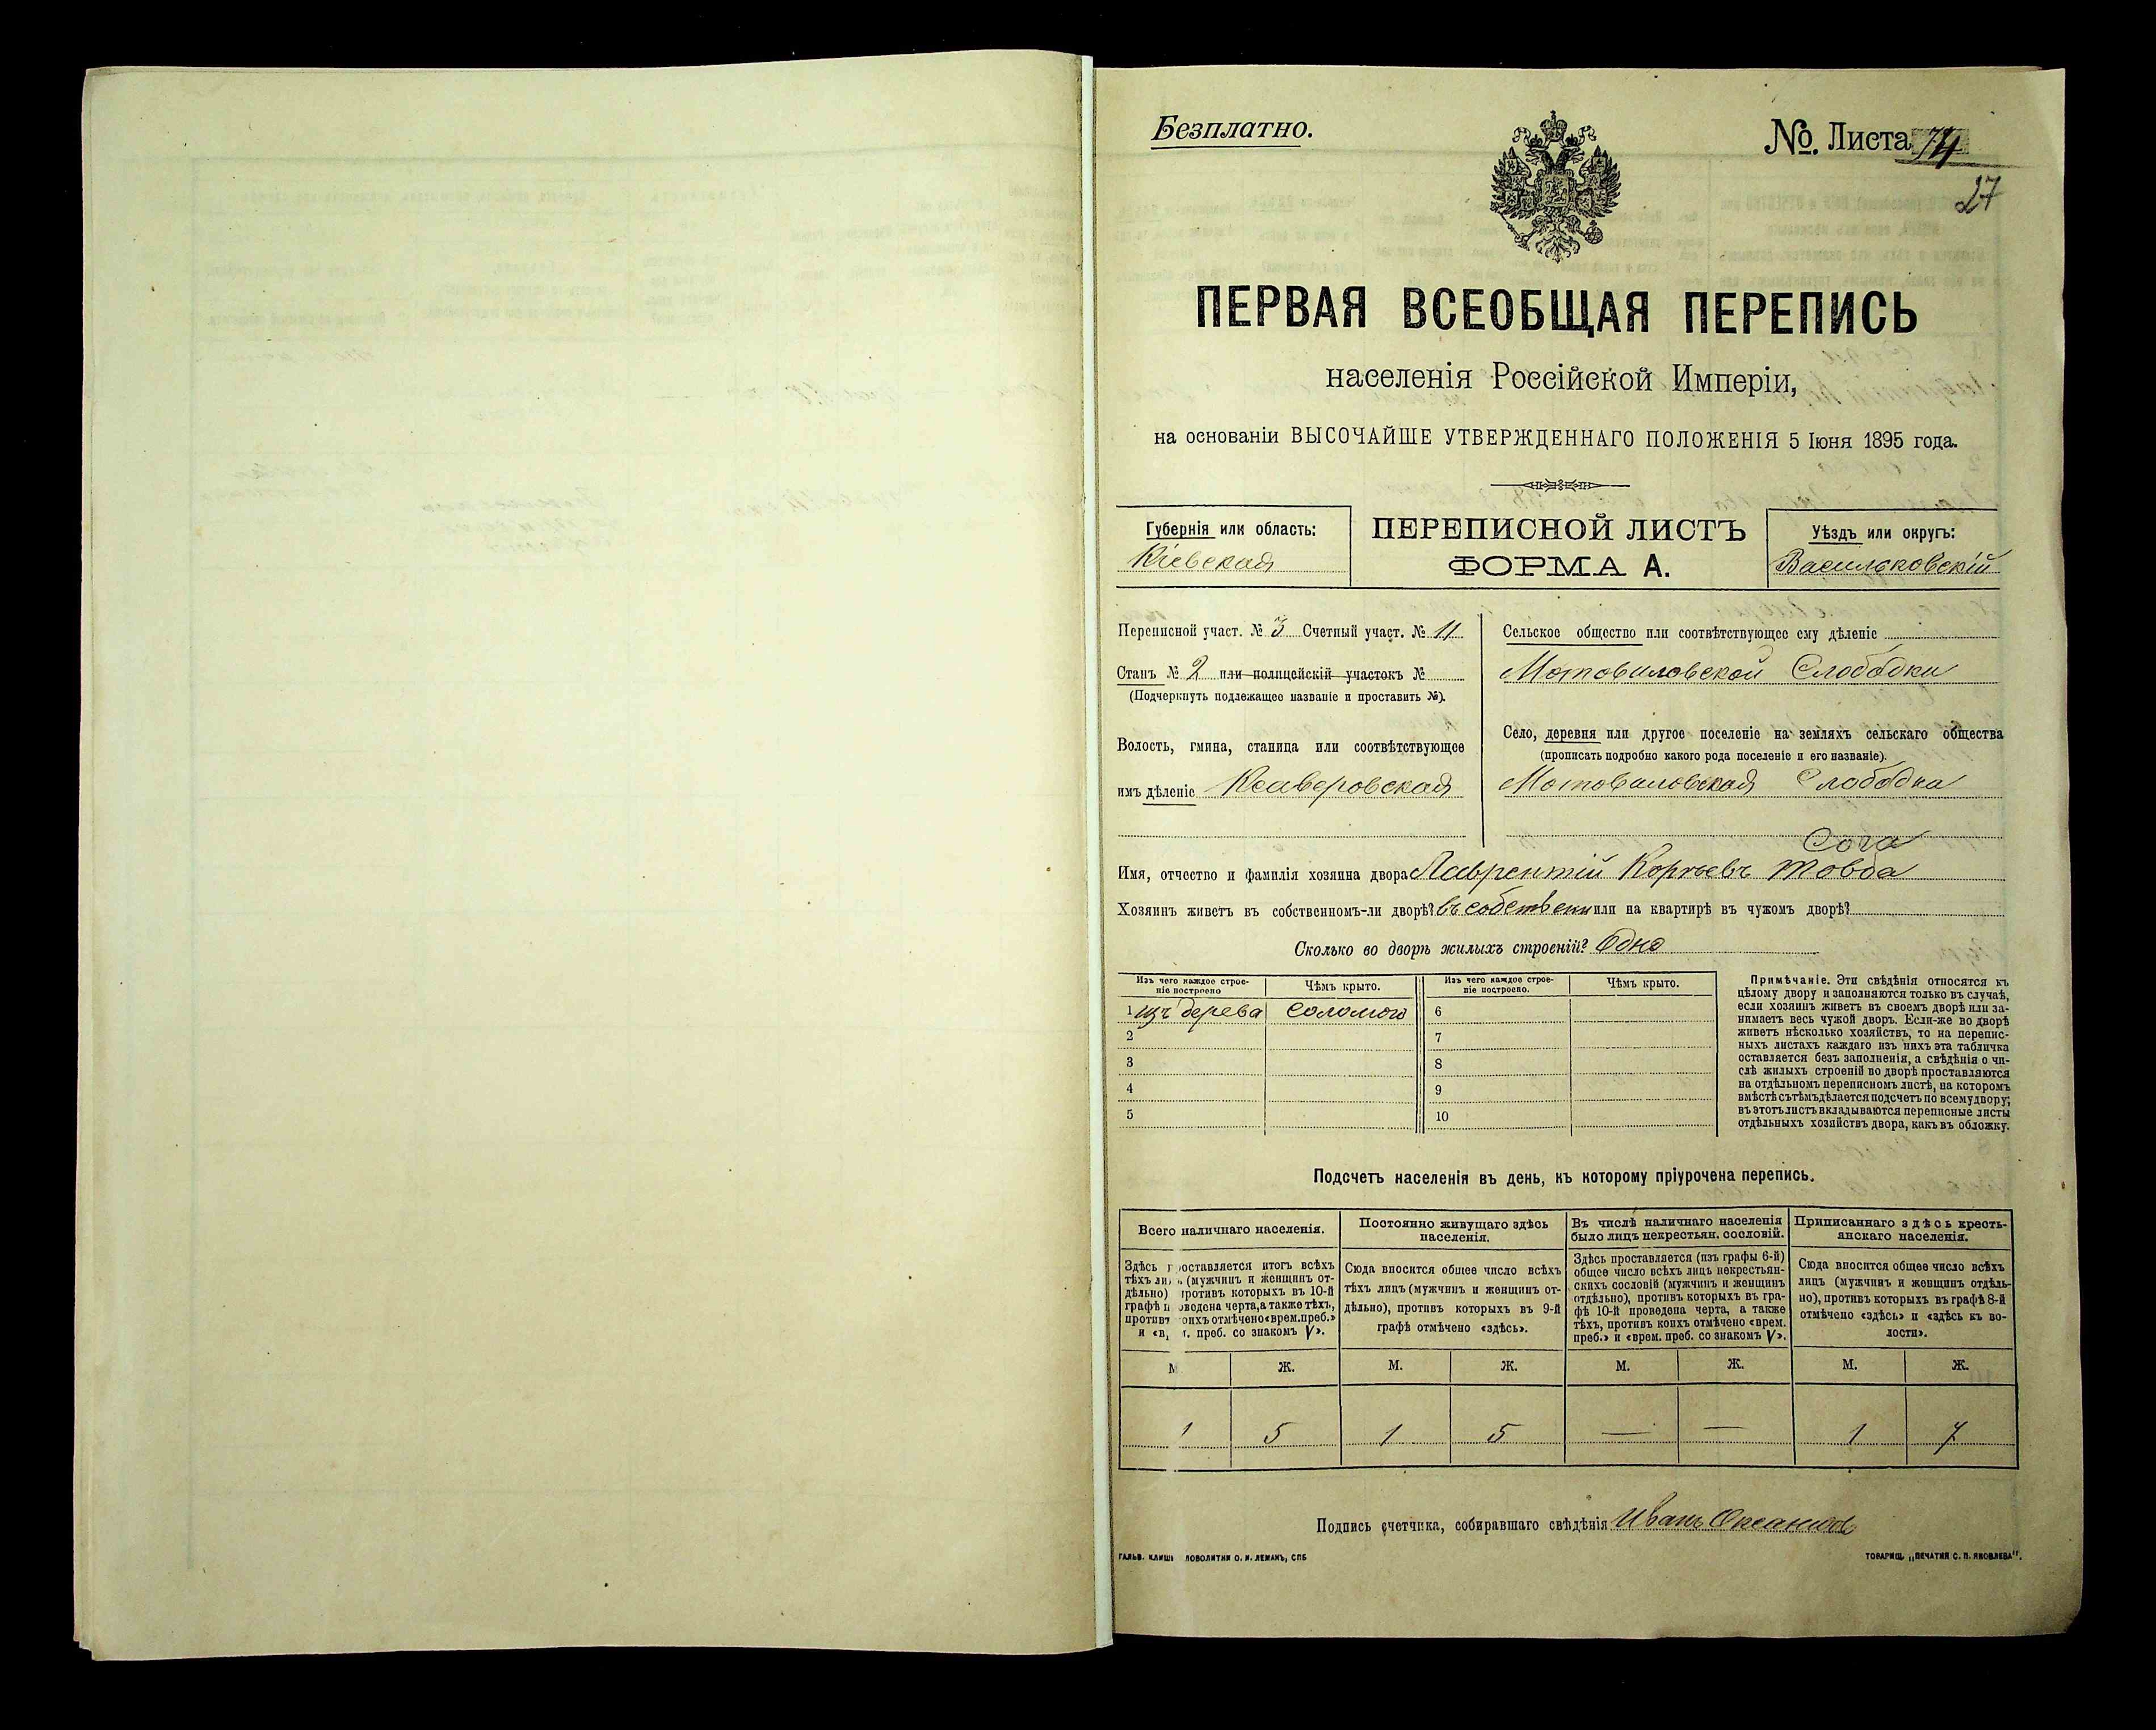 Безплатно.
№. Листа 74
27
ПЕРВАЯ ВСЕОБЩАЯ ПЕРЕПИСЬ
населенія Россійской Имперіи,
на основаніи ВЫСОЧАЙШЕ УТВЕРЖДЕННАГО ПОЛОЖЕНІЯ 5 Іюня 1895 года.
Губернія или область:
Кіевская
ПЕРЕПИСНОЙ ЛИСТЪ
ФОРМА А.
Уѣздъ или округъ:
Васильковскій
Переписной участ. № 3 Счетный участ. № 11
Станъ № 2 или полицейскій участокъ №
(Подчеркнуть подлежащее названіе и проставить №).
Волость, гмина, станица или соотвѣтствующее
имъ дѣленіе Ксаверовская
Сельское общество или соотвѣтствующее ему дѣленіе
Мотовиловской Слободки
Село, деревня или другое поселеніе на земляхъ сельскаго общества
(прописать подробно какого рода поселеніе и его названіе).
Мотовиловская Слободка
Имя, отчество и фамилія хозяина двора Лаврентій Корнѣевъ
Хозяинъ живетъ въ собственномъ-ли дворѣ? въ собствен или на квартирѣ въ чужомъ дворѣ?
Сколько во дворѣ жилыхъ строеній? Одно
Изъ чего каждое строе-
ніе построено
Чѣмъ крыто.
Изъ чего каждое строе-
ніе построено.
Чѣмъ крыто.
1 изъ дерева соломою 6
2 7
3 8
4 9
5 10
Примѣчаніе. Эти свѣдѣнія относятся къ
цѣлому двору и заполняются только въ случаѣ,
если хозяинъ живетъ въ своемъ дворѣ или за-
нимаетъ весь чужой дворъ. Если-же во дворѣ
живетъ нѣсколько хозяйствъ, то на перепис-
ныхъ листахъ каждаго изъ нихъ эта табличка
оставляется безъ заполненія, а свѣдѣнія о чи-
слѣ жилыхъ строеній во дворѣ проставляются
на отдѣльномъ переписномъ листѣ, на которомъ
вмѣстѣ съ тѣмъ дѣлается подсчетъ по всему двору;
въ этотъ листъ вкладываются переписные листы
отдѣльныхъ хозяйствъ двора, какъ въ обложку.
Подсчетъ населенія въ день, къ которому пріурочена перепись.
Всего наличнаго населенія.
Здѣсь проставляется итогъ всѣхъ
тѣхъ лицъ (мужчинъ и женщинъ от-
дѣльно) противъ которыхъ въ 10-й
графѣ проведена черта, а также тѣхъ,
противъ коихъ отмѣчено «врем. преб.»
и «вр. преб. со знакомъ V».
Постоянно живущаго здѣсь
населенія.
Сюда вносится общее число всѣхъ
тѣхъ лицъ (мужчинъ и женщинъ от-
дѣльно), противъ которыхъ въ 9-й
графѣ отмѣчено «здѣсь».
Въ числѣ наличнаго населенія
было лицъ некрестьян. сословій.
Здѣсь проставляется (изъ графы 6-й)
общее число всѣхъ лицъ некрестьян-
скихъ сословій (мужчинъ и женщинъ
отдѣльно), противъ которыхъ въ гра-
фѣ 10-й проведена черта, а также
тѣхъ, противъ коихъ отмѣчено «врем.
преб.» и «врем. преб. со знакомъ V».
Приписаннаго здѣсь кресть-
янскаго населенія.
Сюда вносится общее число всѣхъ
лицъ (мужчинъ и женщинъ отдѣль-
но), противъ которыхъ въ графѣ 8-й
отмѣчено «здѣсь» и «здѣсь въ во-
лости».
М. Ж. М. Ж. М. Ж. М. Ж.
1 5 1 5 — — 1 7
Подпись счетчика, собиравшаго свѣдѣнія Иванъ
ГАЛЬВ. КЛИШЕ СЛОВОЛИТНИ О. И. ЛЕМАНЪ, СПБ
ТОВАРИЩ. „ПЕЧАТНЯ С. П. ЯКОВЛЕВА".